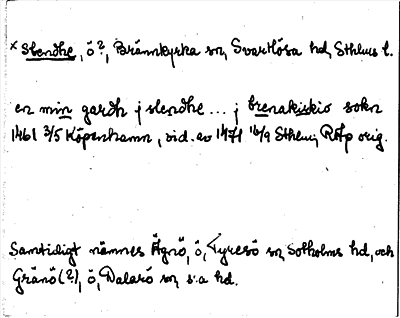 × Slendhe, ö?, Brännkyrka sn, Svartlösa hd, Sthlms l.
en min gardh j slendhe ... j brenakirkio sokn
1461 3/5 Köpenhamn, vid. av 1471 16/9 Sthlm, RAp orig.
Samtidigt nämnes Ägnö, ö, Tyresö sn, Sotholms hd, och
Gränö (?), ö, Dalarö sn, s:a hd.